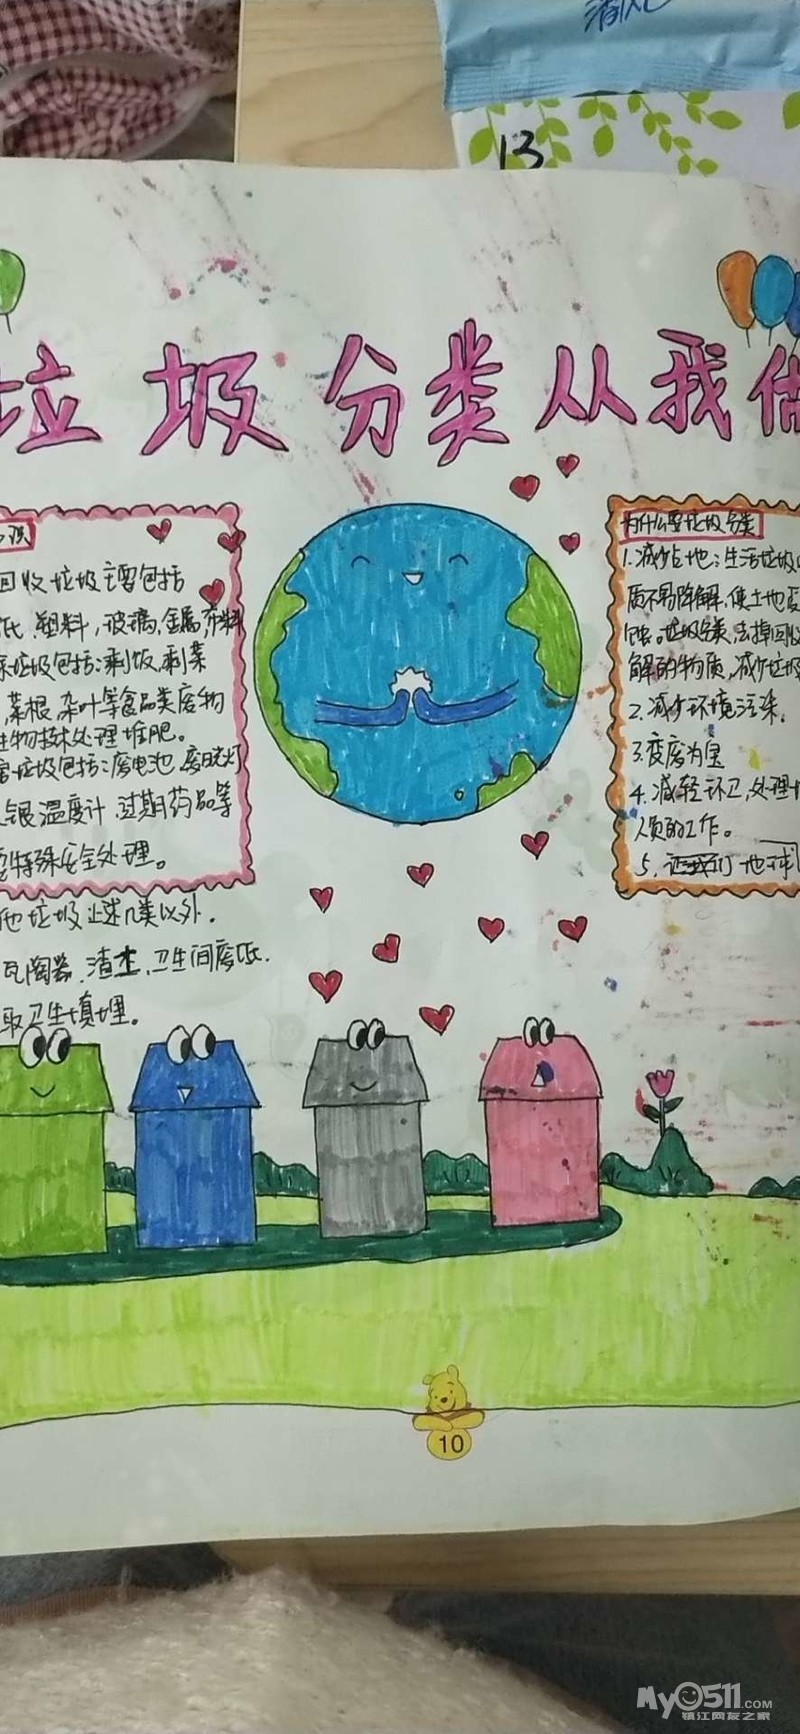 13
垃圾分类从我做
回收垃圾主要包括
纸、塑料,玻璃,金属,布料
垃圾包括:剩饭,剩菜
,菜根,杂叶等食品类废物
生物技术处理堆肥。
害垃圾包括:废电池、废日光灯
银温度计、过期药品等
特殊安全处理。
他垃圾上述几类以外.
瓦陶器、渣土、卫生间废纸.
取卫生填埋。
为什么要垃圾分类
1.减少占地:生活垃圾
质不易降解,使土地受
蚀.垃圾分类,去掉回收
解的物质,减少垃圾
2.减少环境污染.
3.变废为宝
4.减轻环卫,处理
人员的工作。
5.让我们地球
10
My0511.com
镇江网友之家